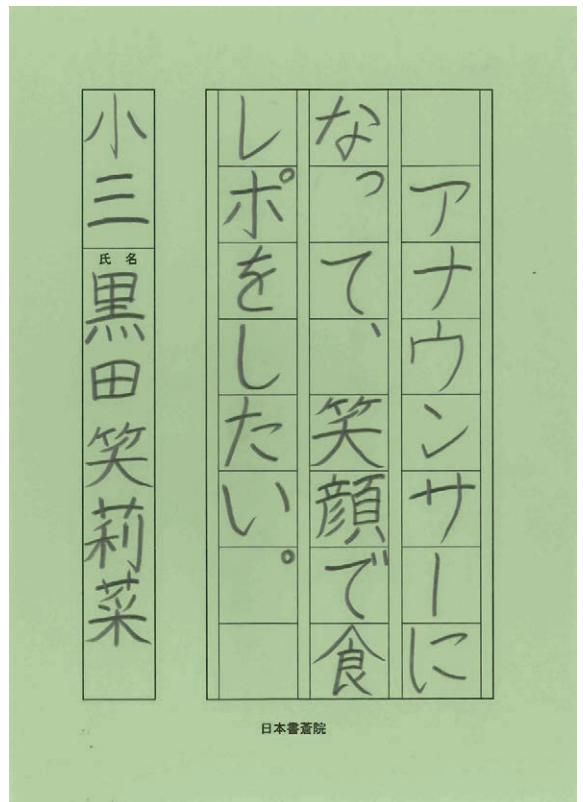 アナウンサーに
なって、笑顔で食
レポをしたい。
小三
氏名
黒田笑莉菜
日本書斎院